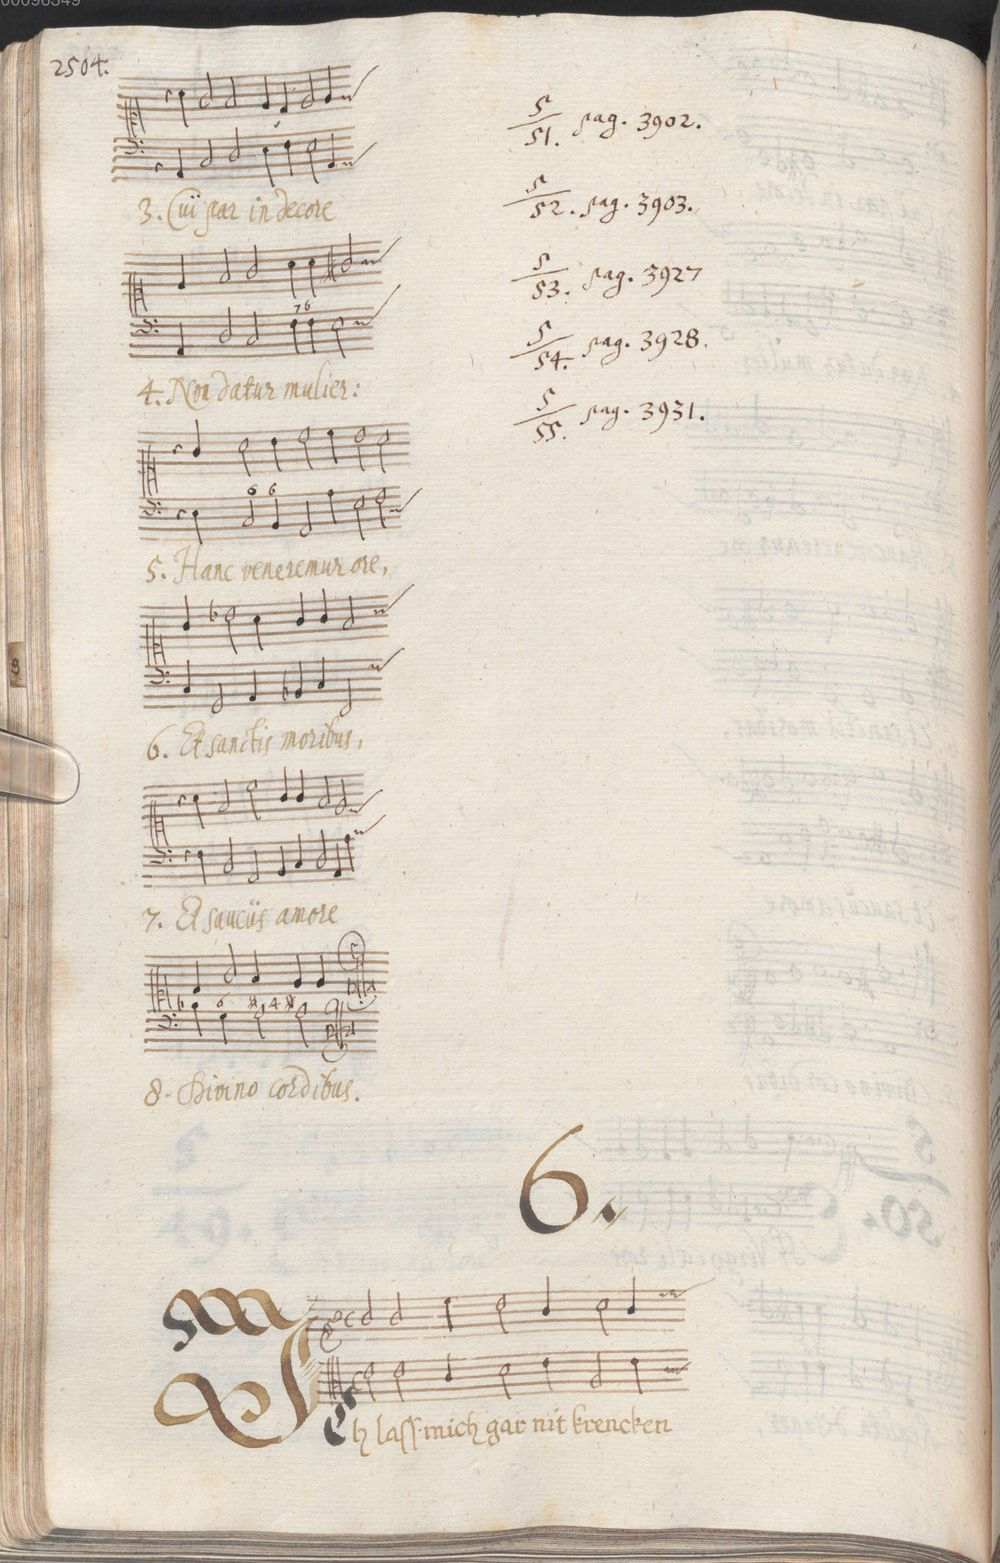 00098349
2504.
3. Cui par in decore
7 6
4. Non datur mulier:
6 6
5. Hanc veneremur ore,
6. Et sanctis moribus,
7. Et sauciis amore
6 4
8. Divino cordibus.
5/51. pag. 3902.
5/52. pag. 3903.
5/53. pag. 3927
5/54. pag. 3928.
5/55. pag. 3931.
6.
Ich lass mich gar nit krencken